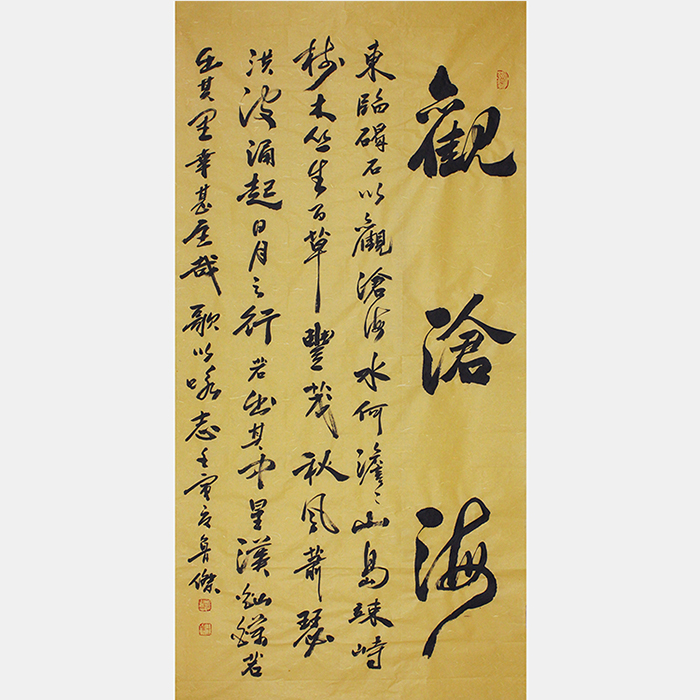 觀滄海
東臨碣石以觀滄海水何澹々山島竦峙
樹木叢生百草豐茂秋風蕭瑟
洪波涌起日月之行若出其中星漢燦爛若
出其里幸甚至哉歌以咏志壬寅冬魯傑